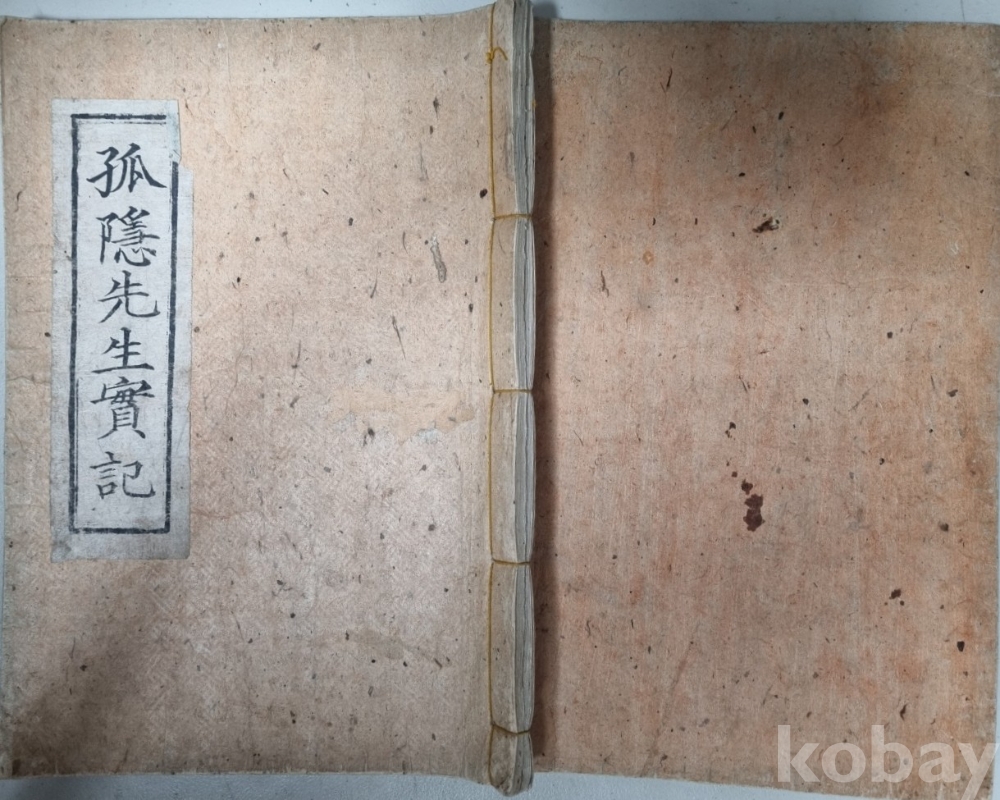 孤隱先生實記
kobay